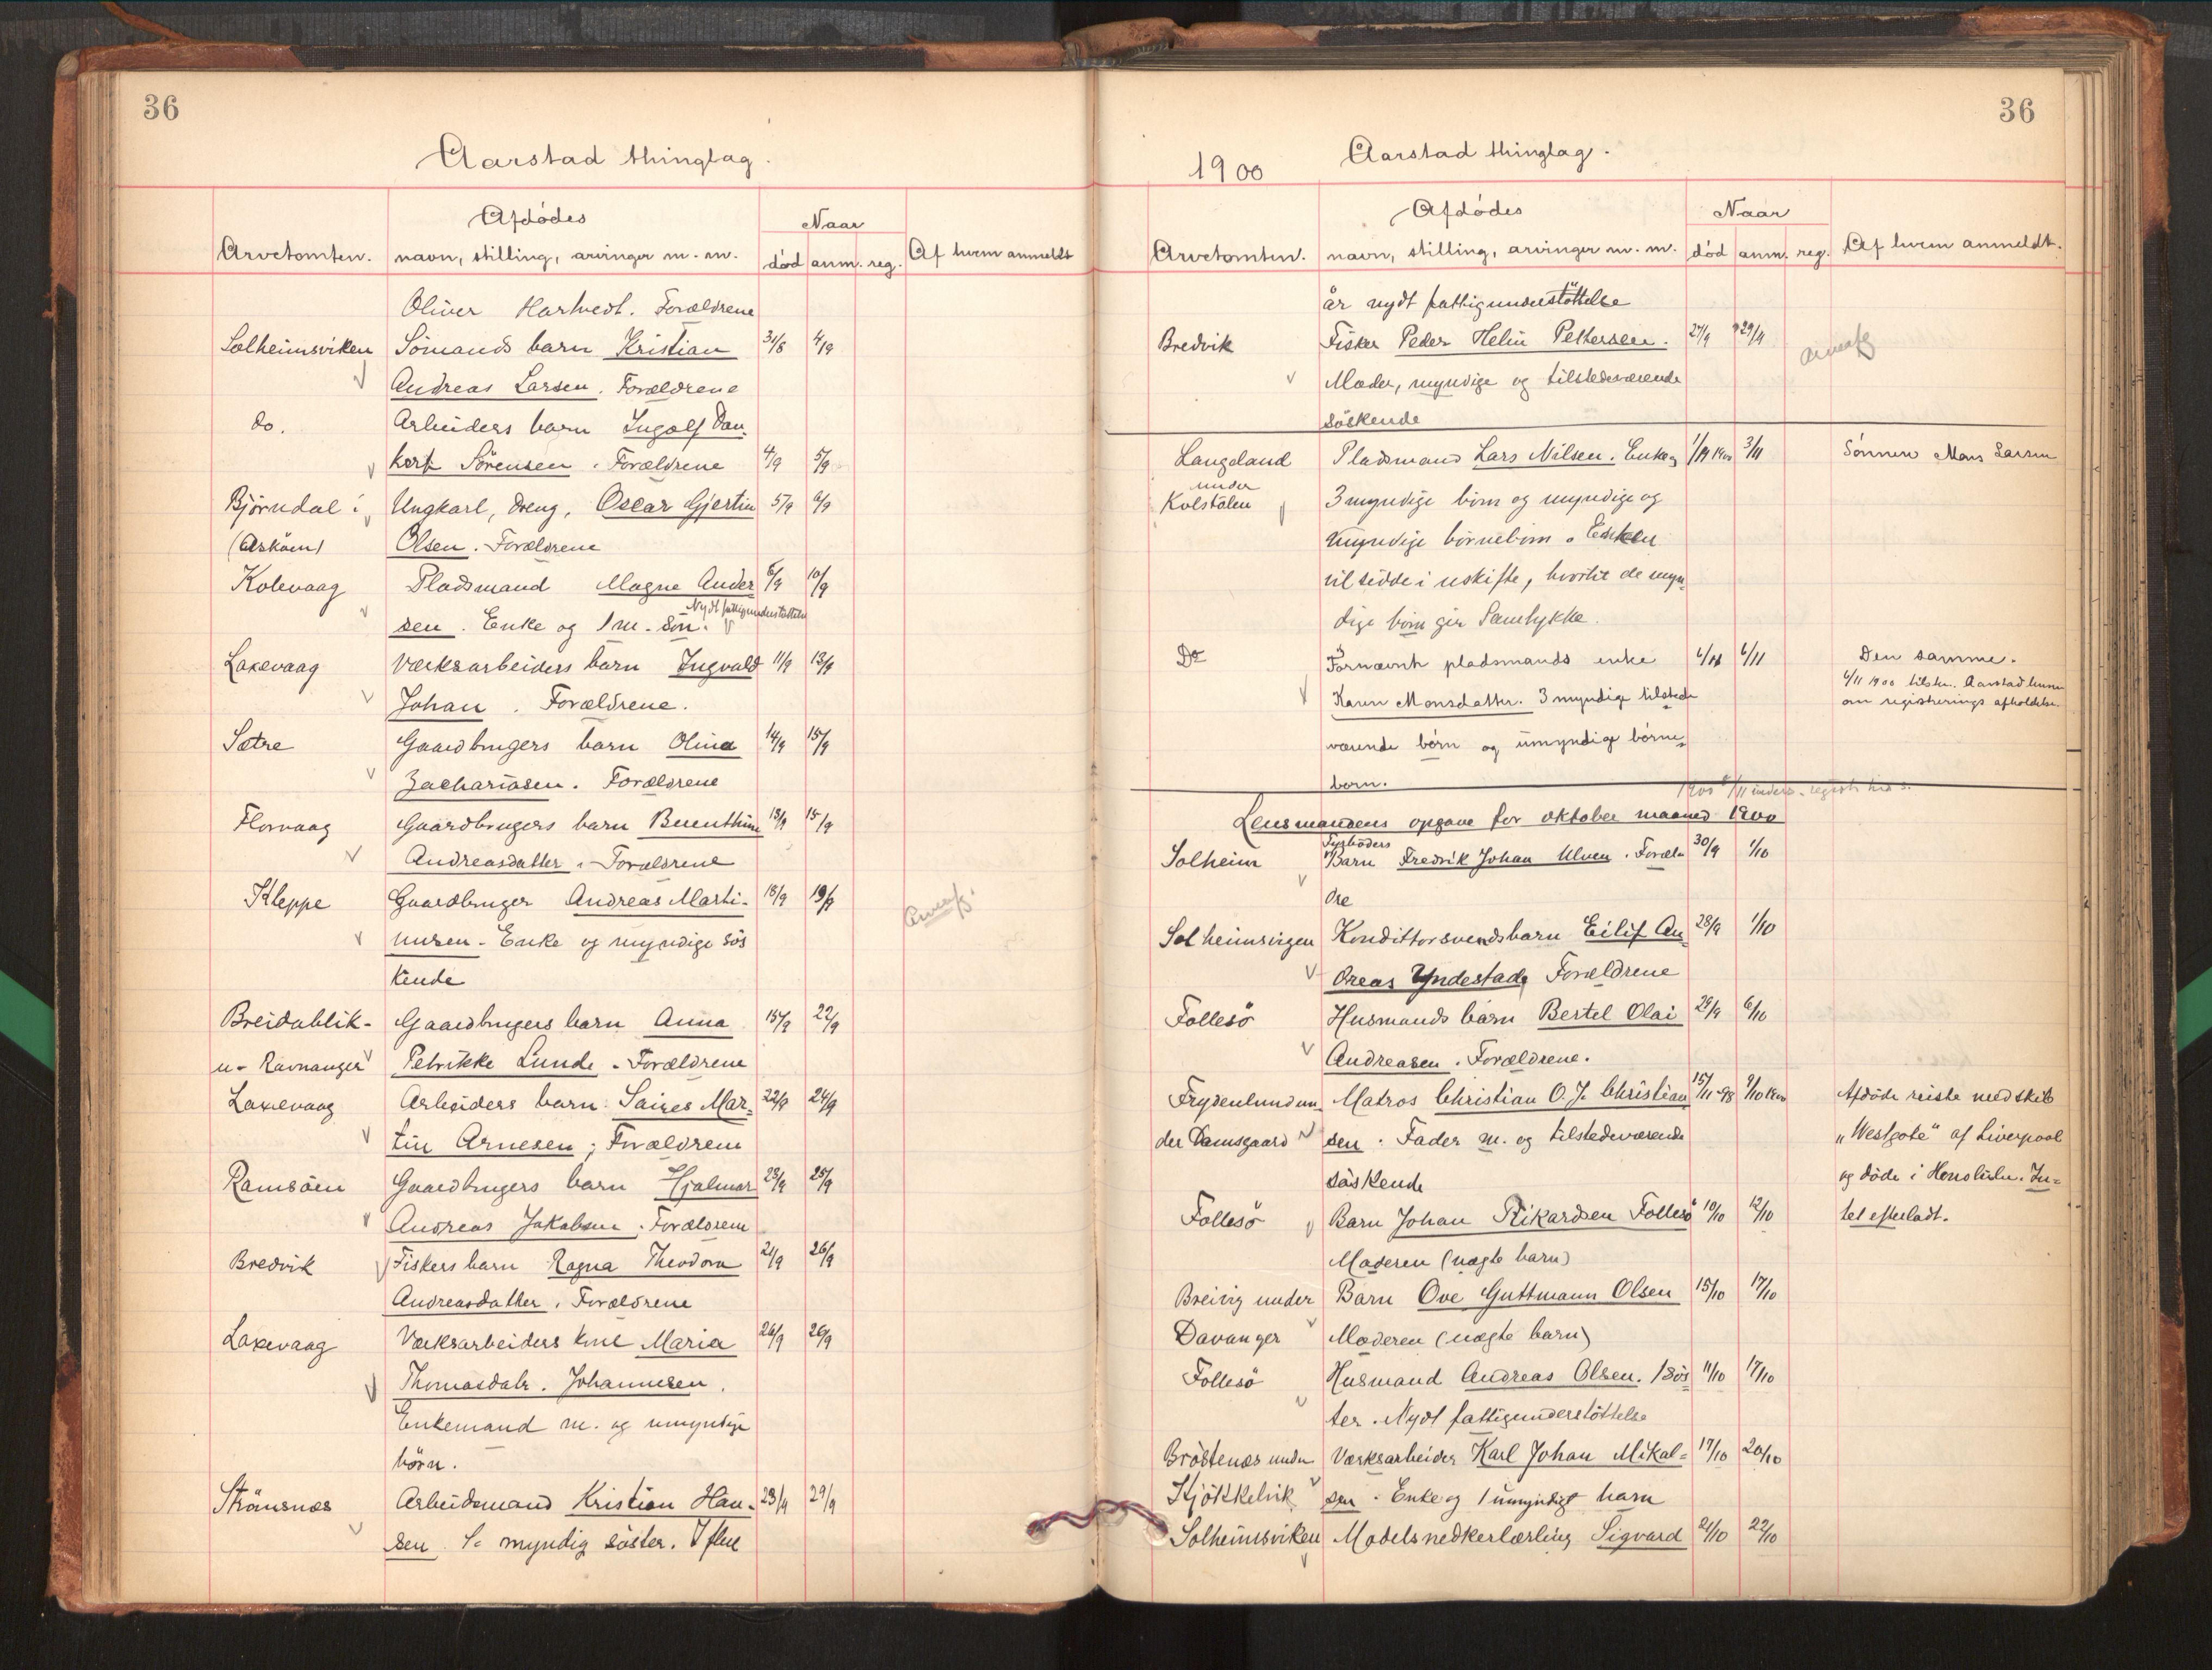 36
Aarstad thinglag.
Arvetomten.
Afdödes
navn, stilling, arvinger m. m.
Naar
död anm. reg.
Af hvem anmeldt
Oliver Hartvedt. Forældrene
Solheimsviken Sömands barn Kristian 31/8 4/9
Andreas Larsen. Forældrene
do. Arbeiders barn Ingolf Dan-
kert Sörensen. Forældrene 4/9 5/9
Björndal i Ungkarl, dreng, Oscar Gjertin 5/9 6/9
(Asköen) Olsen. Forældrene
Kolevaag Pladsmand Magne Ander- 6/9 10/9
Nydt fattigunderstöttelse
sen. Enke og 1 m. sön.
Laxevaag Værksarbeiders barn Ingvald 11/9 13/9
Johan. Forældrene.
Sætre Gaardbrugers barn Olina 14/9 15/9
Zachariasen. Forældrene
Florvaag Gaardbrugers barn Berenthine 13/9 15/9
Andreasdatter. Forældrene
Kleppe Gaardbruger Andreas Marti- 18/9 19/9
nusen. Enke og myndige sös
kende
Breidablik- Gaardbrugers barn Anna 15/9 22/9
u. Ravnanger Petrikke Lunde. Forældrene
Laxevaag Arbeiders barn Mar- 22/9 24/9
tin Arnesen; Forældrene
Ramsöen Gaardbrugers barn Hjalmar 23/9 25/9
Andreas Jakobsen. Forældrene
Bredvik Fiskers barn Ragna Theodora 21/9 26/9
Andreasdatter. Forældrene
Laxevaag Værksarbeiders kone Maria 26/9 26/9
Thomasdatr. Johannesen.
Enkemand m. og umyndige
börn.
Strömsnes Arbeidsmand Kristian Han- 23/9 29/9
sen. 1. myndig söster. I flere
36
1900
Aarstad thinglag.
Arvetomten.
Afdödes
navn, stilling, arvinger m. m.
Naar
död anm. reg.
Af hvem anmeldt.
år nydt fattigunderstöttelse
Bredvik Fisker Peder Helin Pettersen. 27/9 29/9
Moder, myndige og tilstedeværende
söskende
Langeland Pladsmand Lars Nilsen. Enke og 1/11 1900 3/11 Sönnen Mons Larsen
under
Kolstölen 3 myndige börn og myndige og
umyndige börnebörn. Enken
vil sidde i uskifte, hvortil de myn-
dige börn gir Samtykke.
Do Fornævnte pladsmands enke 6/11 6/11 Den samme.
Karen Monsdatter. 3 myndige tilstede 6/11 1900 tilskr. Aarstad
om registrerings afholdelse.
værende börn og umyndige börne-
börn.
Lensmandens opgave for oktober maaned 1900
Solheim Barn Fredrik Johan Ulven. Foræl- 30/9 1/10
dre
Solheimsvigen Kondittorsvendsbarn Eilif An- 28/9 1/10
dreas Yndestad. Forældrene
Follesö Husmands barn Bertel Olai 29/9 6/10
Andreasen. Forældrene.
Frydenlund un- Matros Christian O. J. Christian 15/11 98 9/10 1900 Afdöde reiste med skib
der Damsgaard sen. Fader m. og tilstedeværende "Westgate" af Liverpool
söskende og döde i Honolulu. In-
Follesö Barn Johan Rikardsen Follesö 10/10 12/10 tet efterladt.
Moderen (uægte barn)
Breivig under Barn Ove Guttmann Olsen 15/10 17/10
Davanger Moderen (uægte barn)
Follesö Husmand Andreas Olsen. 1 sös- 11/10 17/10
ter. Nydt fattigunderstöttelse
Bröstenes under Værksarbeider Karl Johan Mikal- 17/10 20/10
Kjökkelvik sen. Enke og 1 umyndigt barn
Solheimsviken Modelsnedkerlærling Sigvard 21/10 22/10